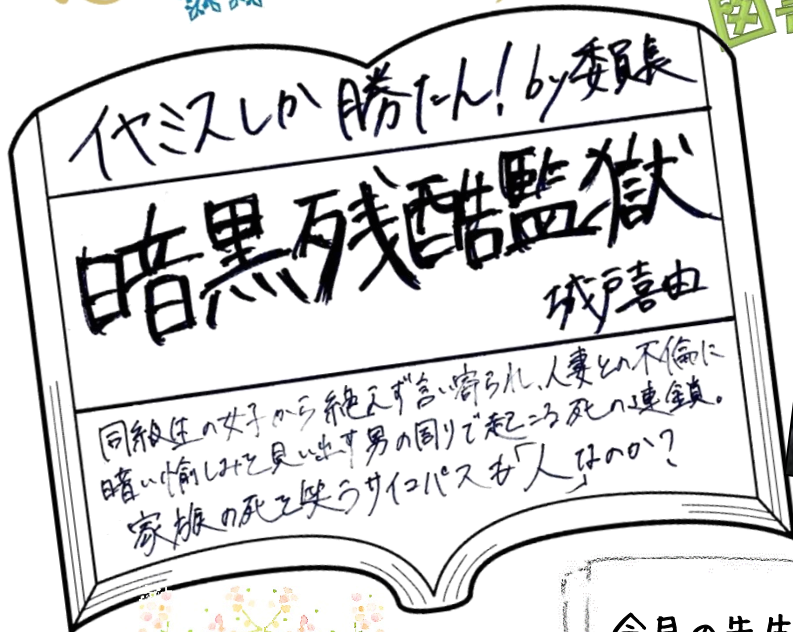 図書
イヤミスしか勝たん！by委員長
暗黒残酷監獄
城戸喜由
同級生の女子から絶えず言い寄られ、人妻との不倫に
暗い愉しみを見い出す男の周りで起こる死の連鎖。
家族の死を笑うサイコパスも「人」なのか？
今月の先生